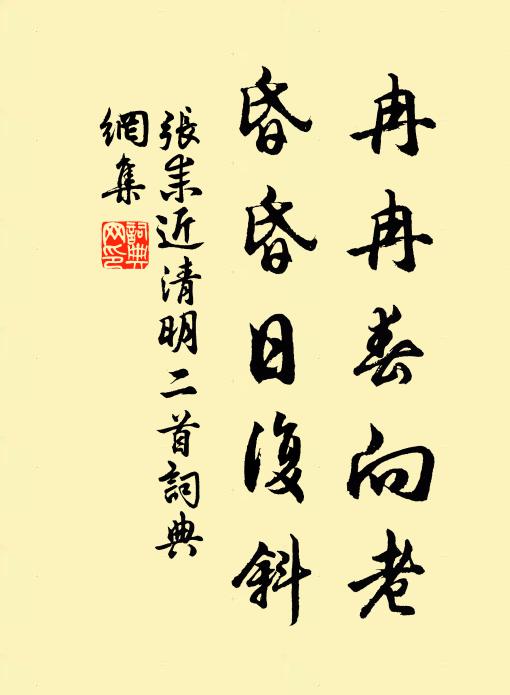 冉冉春向老
昏昏日復斜
張耒近清明二首詞典
網集
詞典網印